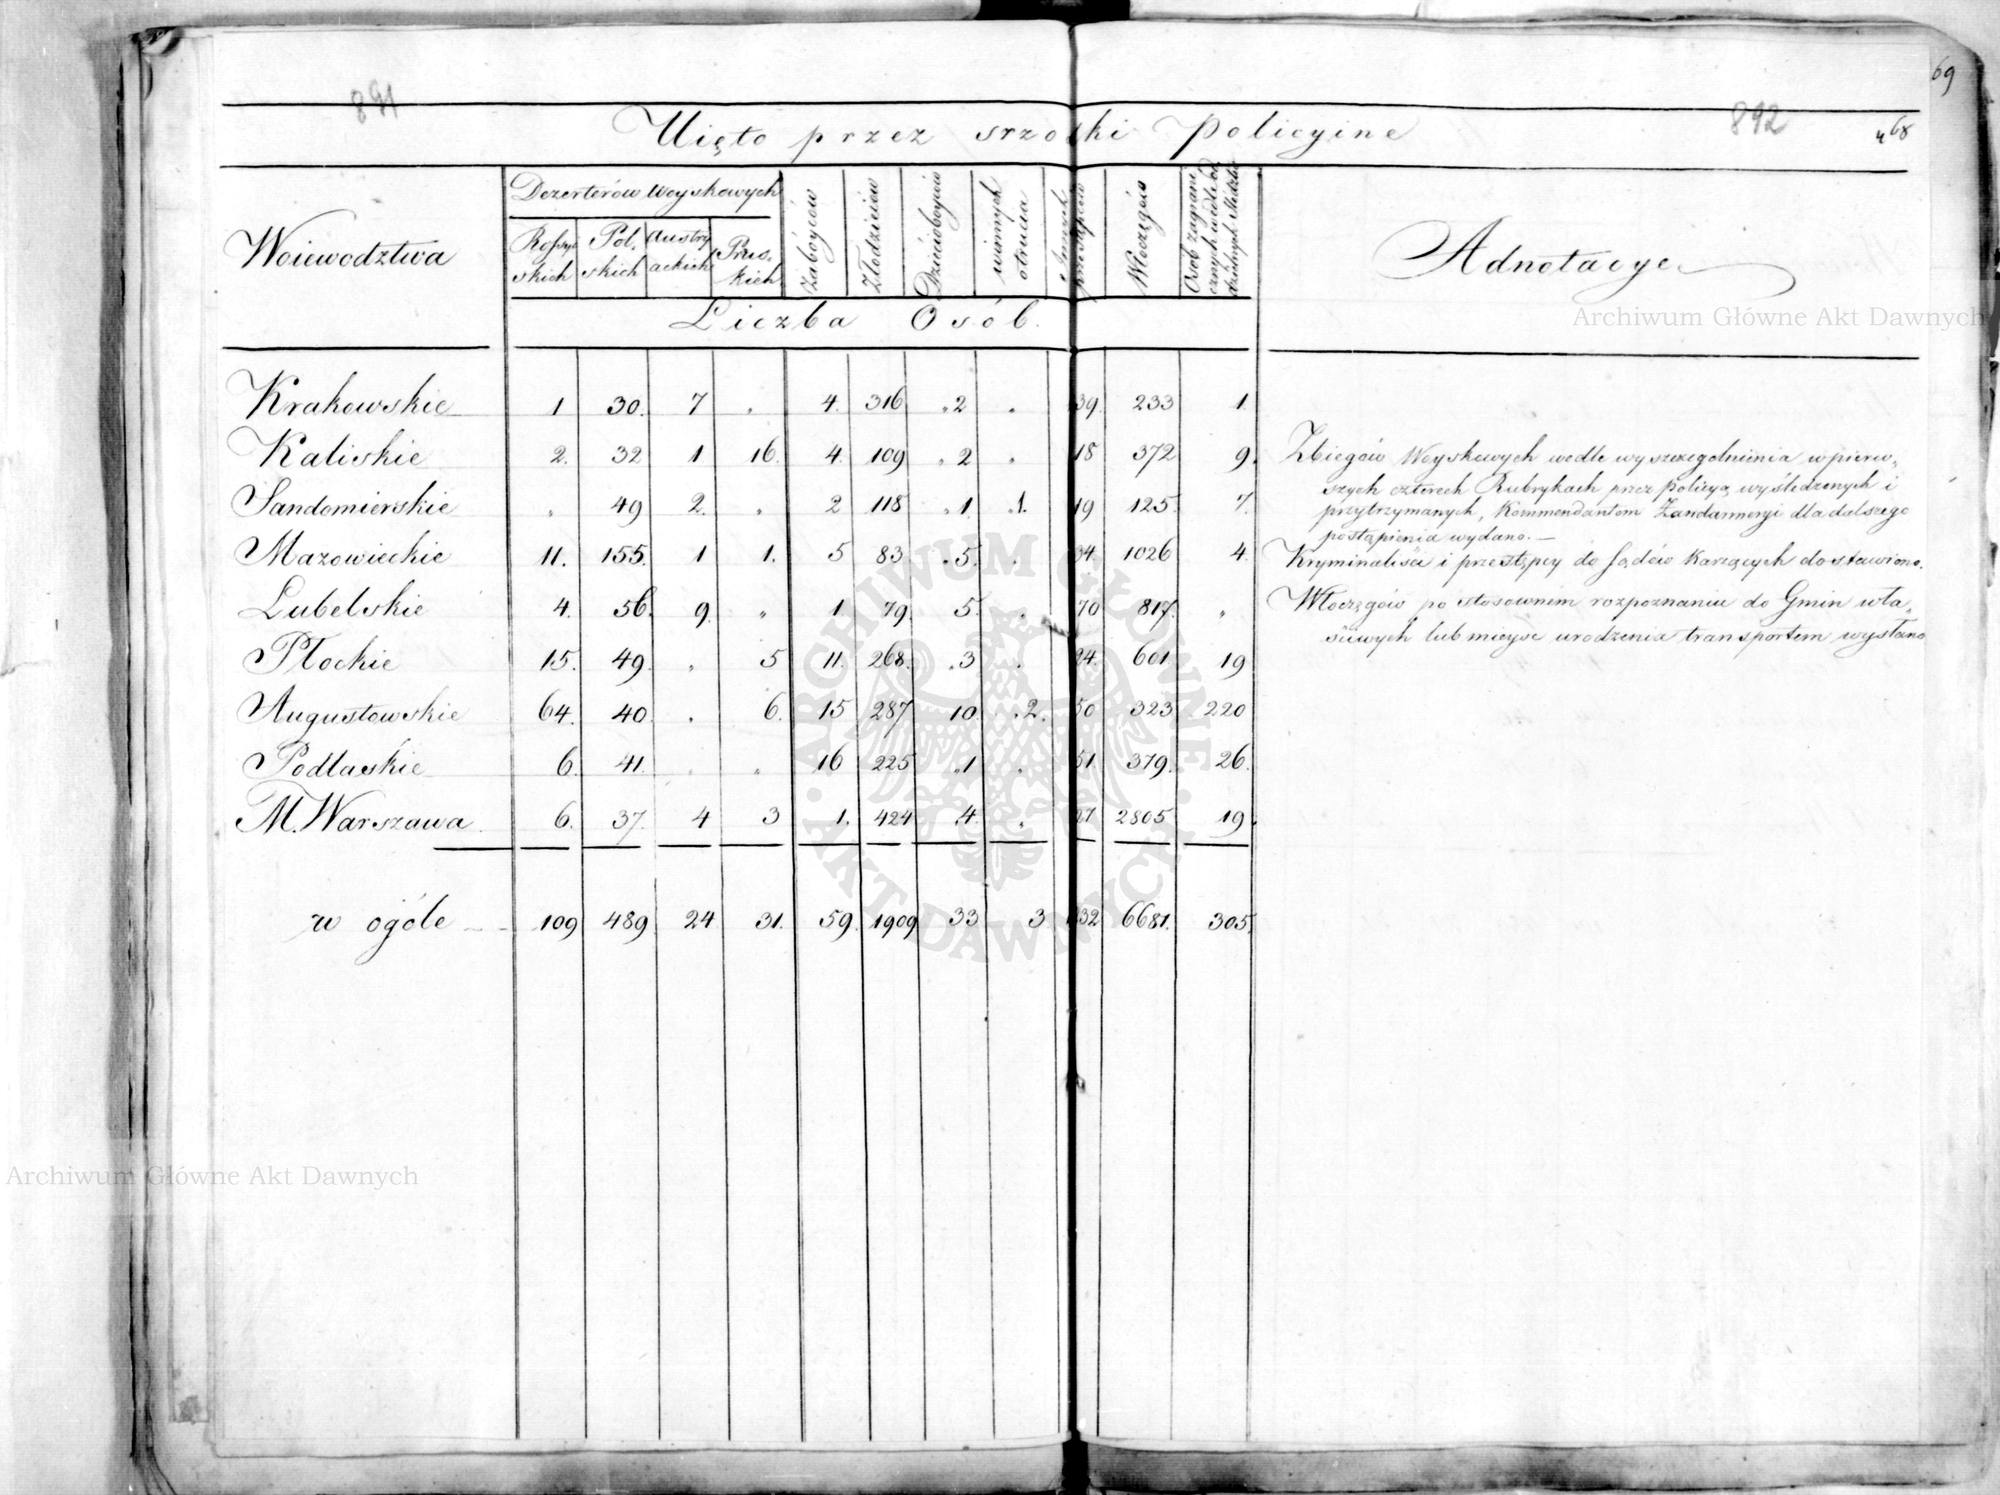 891
892
69
468
Uięto przez srzodki Policyine
Woiewodztwa
Dezerterów Woyskowych
Rossyi skich
Pol. skich
Austry ackich
Prus. kich
Zabóyców
Złodzieiów
Dzieciobóyców
winnych otrucia
Innych
Włoczęgów
Osób zagrani cznych wedle
Adnotacye
Liczba Osób.
Krakowskie 1 30. 7 „ 4. 316 2 „ 39. 233 1.
Kaliskie 2. 32 1 16. 4. 109 2 „ 18 372 9.
Sandomierskie „ 49 2. „ 2 118 1. 1. 19 125. 7.
Mazowieckie 11. 155. 1 1. 5 83 5. „ 34. 1026 4.
Lubelskie 4. 56. 9. „ 1. 79. 5. „ 70 817. „
Płockie 15. 49. „ 5 11. 268. 3 „ 24. 601 19
Augustowskie 64. 40. „ 6. 15 287 10 2. 50 323 220
Podlaskie 6. 41. „ „ 16 225 1 „ 51. 379. 26.
M. Warszawa 6. 37. 4 3 1. 424 4. „ 27 2805 19.
w ogóle 109 489 24 31. 59. 1909 33 3 332 6681. 305.
Zbiegów Woyskowych wedle wyszczegolnienia w pierw,
szych czterech Rubrykach przez policyą wyśledzonych i
przytrzymanych, Kommendantom Żandarmeryi dla dalszego
postąpienia wydano. —
Kryminaliści i przestępcy do Sądów Karzących dostawiono.
Włoczęgów po stosownem rozpoznaniu do Gmin wła,
ściwych lub mieysc urodzenia transportem wysłano
Archiwum Główne Akt Dawnych
Archiwum Główne Akt Dawnych
ARCHIWUM GŁÓWNE AKT DAWNYCH